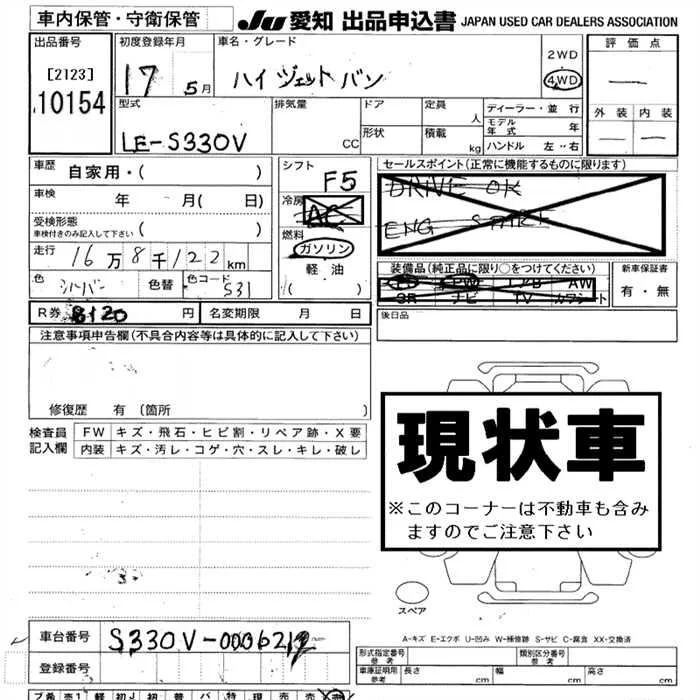 車内保管・守衛保管 JU 愛知 出品申込書 JAPAN USED CAR DEALERS ASSOCIATION
出品番号
[2123]
10154
初度登録年月
17 5月
車名・グレード
ハイジェットバン
2WD
4WD
評価点
—
外装 内装
— —
型式
LE-S330V
排気量
CC
ドア
形状
定員
人
積載
kg
ディーラー・並行
モデル年式 年
ハンドル 左・右
車歴 自家用・( )
車検 年 月( 日)
受検形態
車検付きのみ記入して下さい ( )
走行 16万8千122km
色 シルバー 色替 色コード S31
シフト F5
冷房 AC
燃料
ガソリン
軽油
( )
セールスポイント(正常に機能するものに限ります)
DRIVE OK
ENG START
装備品(純正品に限り○をつけてください)
PS PW エアB AW
SR ナビ TV カワシート
新車保証書
有・無
R券 8120 円 名変期限 月 日
後日品
注意事項申告欄(不具合内容等は具体的に記入して下さい)
修復歴 有(箇所 )
検査員
記入欄
FW キズ・飛石・ヒビ割・リペア跡・X要
内装 キズ・汚レ・コゲ・穴・スレ・キレ・破レ
現状車
※このコーナーは不動車も含み
ますのでご注意下さい
スペア
A-キズ E-エクボ U-凹み W-補修跡 S-サビ C-腐食 XX-交換済
車台番号 S330V-0006212
登録番号
形式指定番号
参考
類別区分番号
参考
車庫証明用
参考
長さ cm 幅 cm 高さ cm